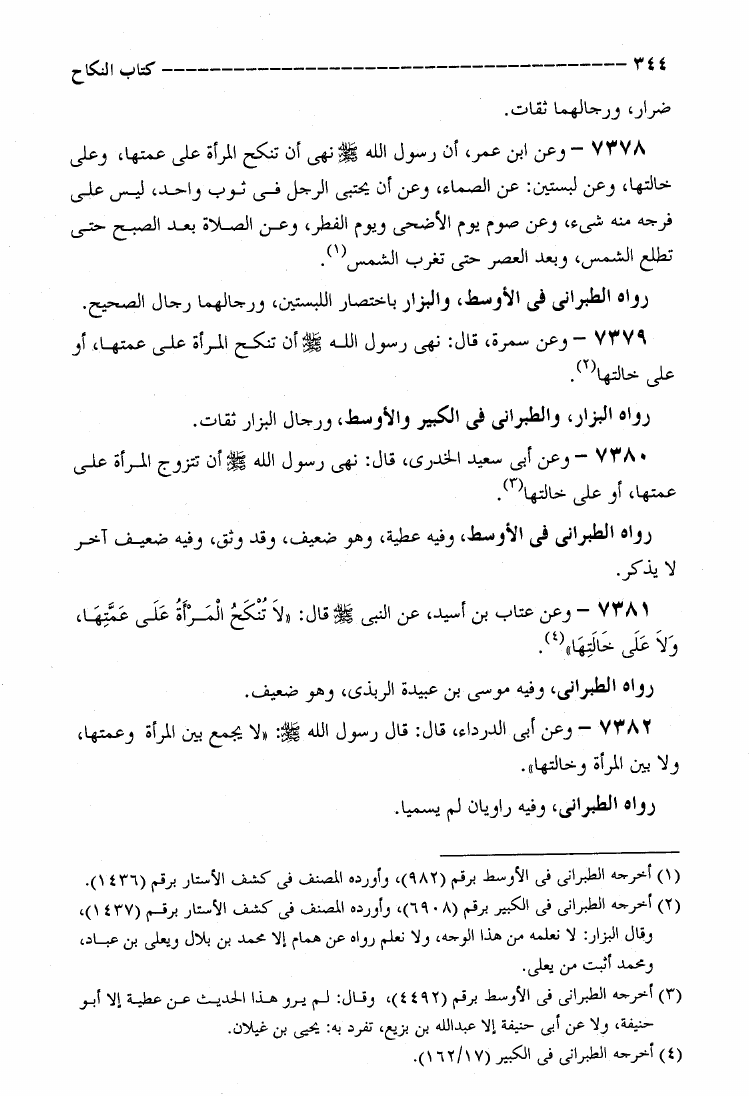 ٣٤٤ ------------------------------------------ كتاب النكاح
ضرار، ورجالهما ثقات.
٧٣٧٨ – وعن ابن عمر، أن رسول الله ﷺ نهى أن تنكح المرأة على عمتها، وعلى
خالتها، وعن لبستين: عن الصماء، وعن أن يحتبى الرجل فى ثوب واحد، ليس على
فرجه منه شىء، وعن صوم يوم الأضحى ويوم الفطر، وعن الصلاة بعد الصبح حتى
تطلع الشمس، وبعد العصر حتى تغرب الشمس(١).
رواه الطبرانى فى الأوسط، والبزار باختصار اللبستين، ورجالهما رجال الصحيح.
٧٣٧٩ – وعن سمرة، قال: نهى رسول الله ﷺ أن تنكح المرأة على عمتها، أو
على خالتها(٢).
رواه البزار، والطبرانى فى الكبير والأوسط، ورجال البزار ثقات.
٧٣٨٠ – وعن أبى سعيد الخدرى، قال: نهى رسول الله ﷺ أن تتزوج المرأة على
عمتها، أو على خالتها(٣).
رواه الطبرانى فى الأوسط، وفيه عطية، وهو ضعيف، وقد وثق، وفيه ضعيف آخر
لا يذكر.
٧٣٨١ – وعن عتاب بن أسيد، عن النبى ﷺ قال: «لاَ تُنْكَحُ الْمَرْأَةُ عَلَى عَمَّتِهَا،
وَلاَ عَلَى خَالَتِهَا»(٤).
رواه الطبرانى، وفيه موسى بن عبيدة الربذى، وهو ضعيف.
٧٣٨٢ – وعن أبى الدرداء، قال: قال رسول الله ﷺ: «لا يجمع بين المرأة وعمتها،
ولا بين المرأة وخالتها».
رواه الطبرانى، وفيه راويان لم يسميا.
(١) أخرجه الطبرانى فى الأوسط برقم (٩٨٢)، وأورده المصنف فى كشف الأستار برقم (١٤٣٦).
(٢) أخرجه الطبرانى فى الكبير برقم (٦٩٠٨)، وأورده المصنف فى كشف الأستار برقم (١٤٣٧)،
وقال البزار: لا نعلمه من هذا الوجه، ولا نعلم رواه عن همام إلا محمد بن بلال ويعلى بن عباد،
ومحمد أثبت من يعلى.
(٣) أخرجه الطبرانى فى الأوسط برقم (٤٤٩٢)، وقال: لم يرو هذا الحديث عن عطية إلا أبو
حنيفة، ولا عن أبى حنيفة إلا عبدالله بن بزيع، تفرد به: يحيى بن غيلان.
(٤) أخرجه الطبرانى فى الكبير (١٦٢/١٧).